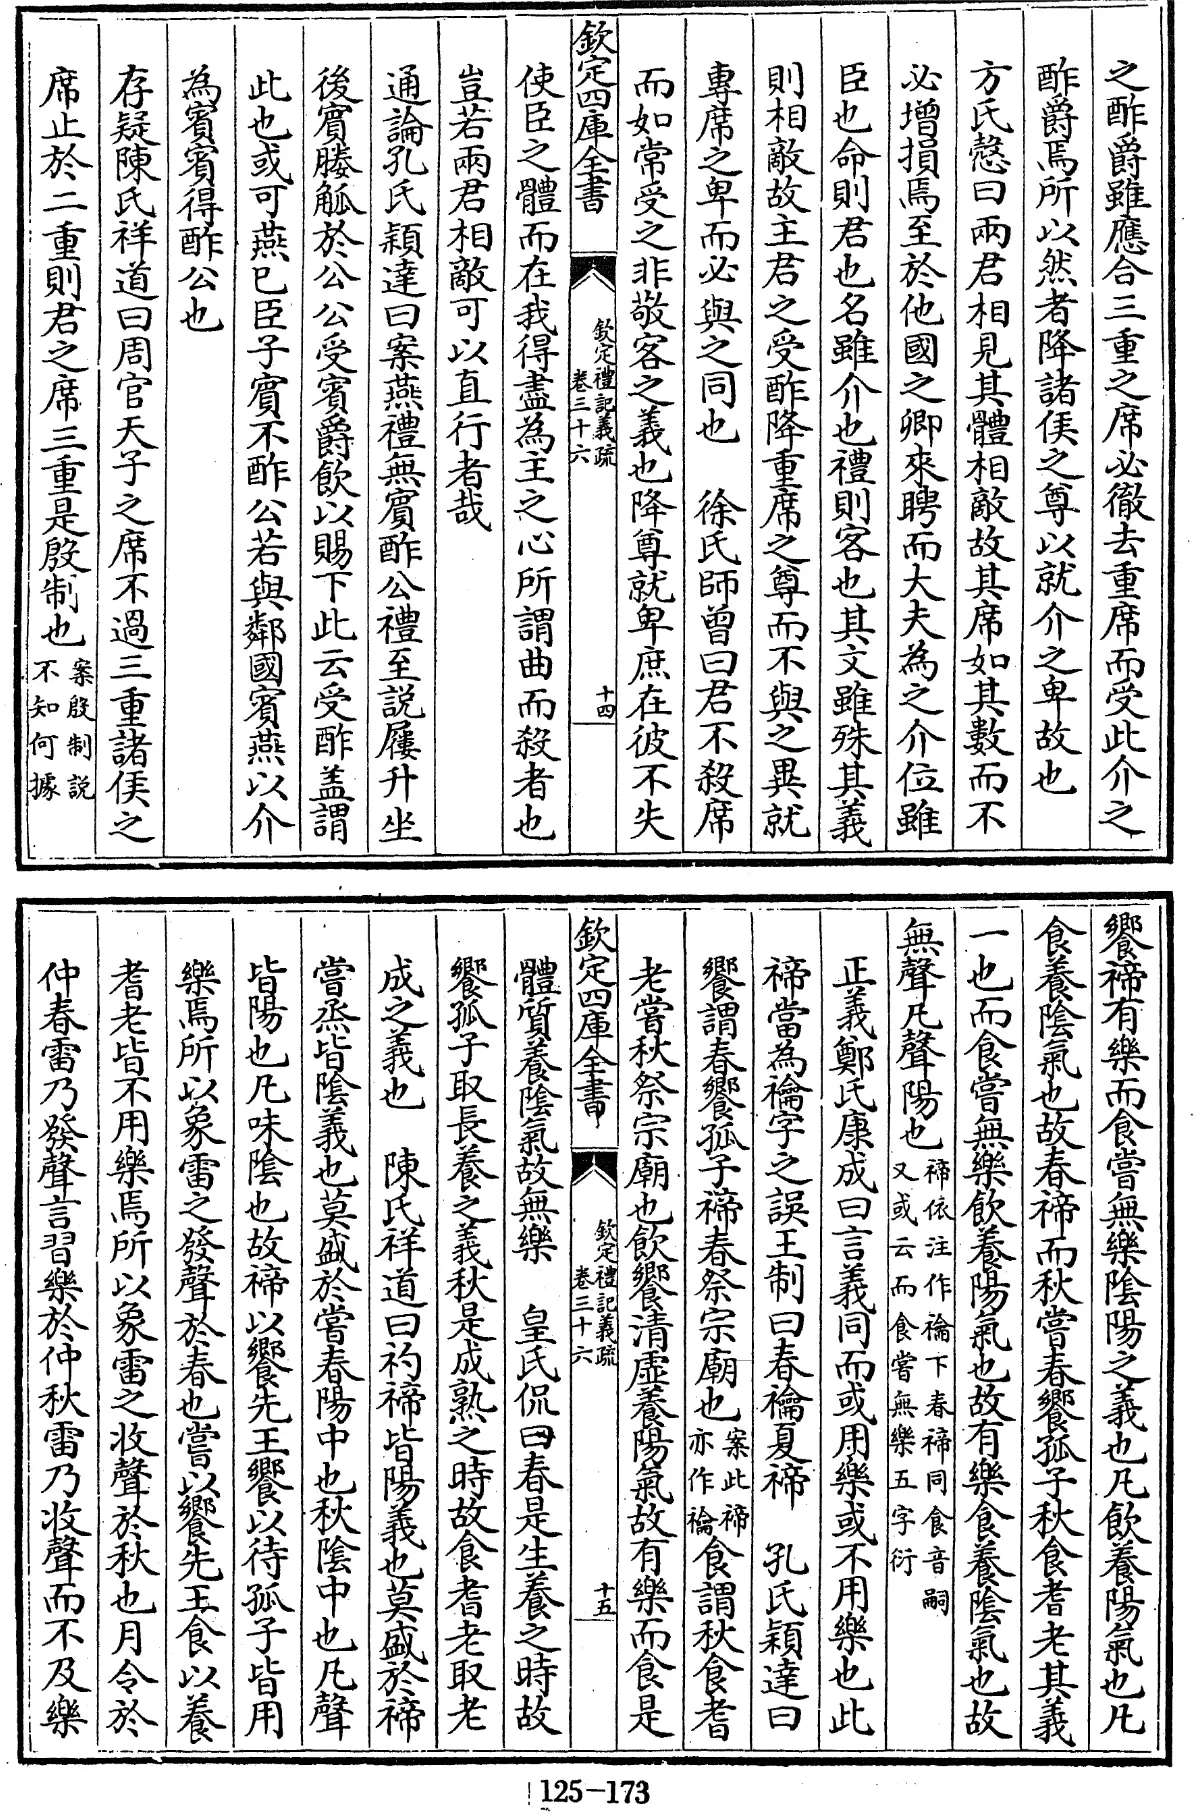 之酢爵雖應合三重之席必徹去重席而受此介之
酢爵焉所以然者降諸侯之尊以就介之卑故也
方氏慤曰兩君相見其體相敵故其席如其數而不
必增損焉至於他國之卿來聘而大夫為之介位雖
臣也命則君也名雖介也禮則客也其文雖殊其義
則相敵故主君之受酢降重席之尊而不與之異就
專席之卑而必與之同也　徐氏師曾曰君不殺席
而如常受之非敬客之義也降尊就卑庶在彼不失
欽定四庫全書
欽定禮記義疏
卷三十六
十四
使臣之體而在我得盡為主之心所謂曲而殺者也
豈若兩君相敵可以直行者哉
通論孔氏穎達曰案燕禮無賓酢公禮至説屨升坐
後賓媵觚於公公受賓爵飲以賜下此云受酢盖謂
此也或可燕己臣子賓不酢公若與鄰國賓燕以介
為賓賓得酢公也
存疑陳氏祥道曰周官天子之席不過三重諸侯之
席止於二重則君之席三重是殷制也案殷制説
不知何據
饗禘有樂而食嘗無樂陰陽之義也凡飲養陽氣也凡
食養陰氣也故春禘而秋嘗春饗孤子秋食耆老其義
一也而食嘗無樂飲養陽氣也故有樂食養陰氣也故
無聲凡聲陽也禘依注作禴下春禘同食音嗣
又或云而食嘗無樂五字衍
正義鄭氏康成曰言義同而或用樂或不用樂也此
禘當為禴字之誤王制曰春禴夏禘　孔氏穎達曰
饗謂春饗孤子禘春祭宗廟也案此禘
亦作禴食謂秋食耆
老嘗秋祭宗廟也飲饗清虛養陽氣故有樂而食是
欽定四庫全書
欽定禮記義疏
卷三十六
十五
體質養陰氣故無樂　皇氏侃曰春是生養之時故
饗孤子取長養之義秋是成熟之時故食耆老取老
成之義也　陳氏祥道曰礿禘皆陽義也莫盛於禘
嘗烝皆陰義也莫盛於嘗春陽中也秋陰中也凡聲
皆陽也凡味陰也故禘以饗先王饗以待孤子皆用
樂焉所以象雷之發聲於春也嘗以饗先王食以養
耆老皆不用樂焉所以象雷之收聲於秋也月令於
仲春雷乃發聲言習樂於仲秋雷乃收聲而不及樂
125-173